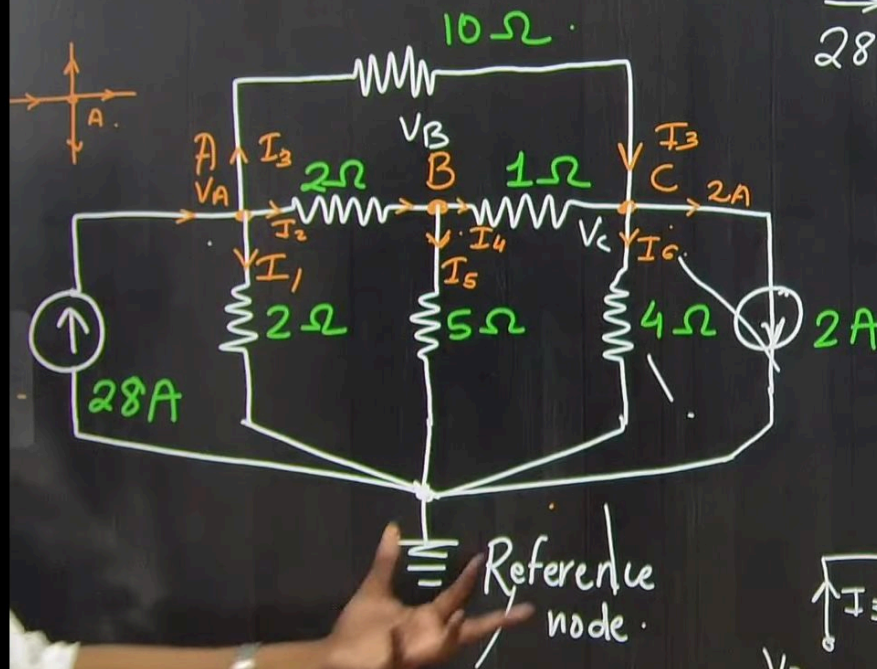 10Ω
28
A.
VB
A I3
I3
VA
2Ω
B
1Ω
C
2A
I2
I4
Vc
I6
I1
I5
2Ω
5Ω
4Ω
2A
28A
Reference
node.